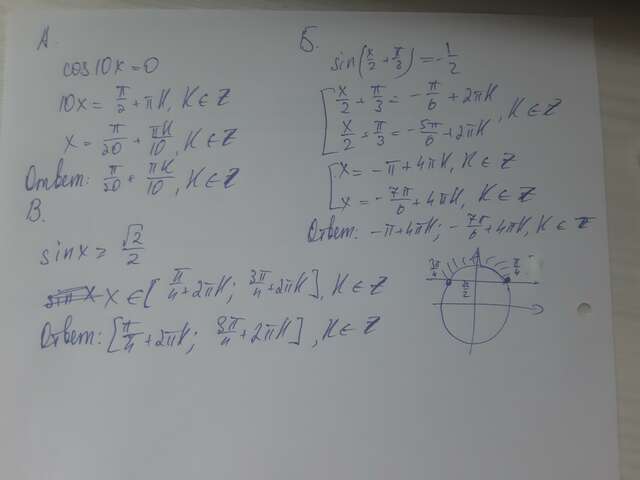 А.
cos10x=0
10x = π/2 + πK, K ∈ Z
x = π/20 + πK/10, K ∈ Z
Ответ: π/20 + πK/10, K ∈ Z
Б.
sin(x/2 + π/3) = -1/2
[ x/2 + π/3 = -π/6 + 2πK
x/2 + π/3 = -5π/6 + 2πK , K ∈ Z
[ x = -π + 4πK, K ∈ Z
x = -7π/6 + 4πK, K ∈ Z
Ответ: -π+4πK; -7π/6 + 4πK, K ∈ Z
В.
sinx ≥ √2/2
x ∈ [π/4 + 2πK; 3π/4 + 2πK], K ∈ Z
Ответ: [π/4 + 2πK; 3π/4 + 2πK], K ∈ Z
3π/4
π/4
π/2